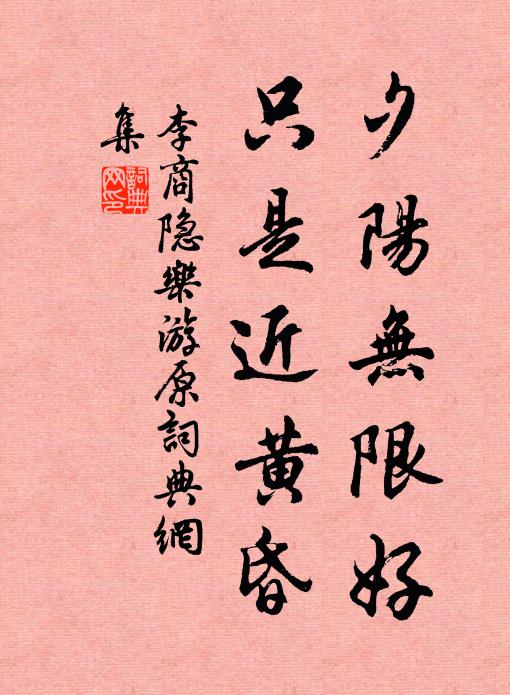 夕陽無限好
只是近黄昏
李商隐樂游原詞典網
集
詞典網印